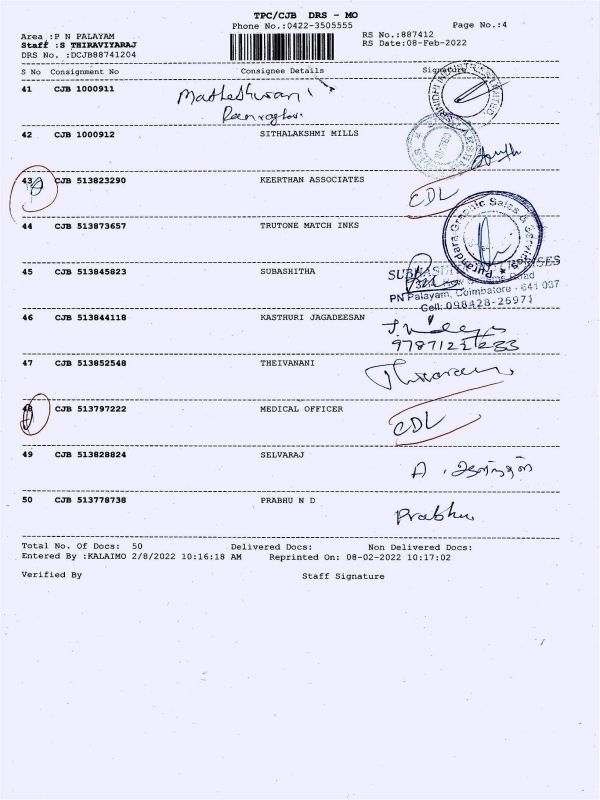 TPC/CJB DRS - MO
Phone No.:0422-3505555 Page No.:4
Area :P N PALAYAM RS No.:887412
Staff :S THIRAVIYARAJ RS Date:08-Feb-2022
DRS No. :DCJB88741204
S No Consignment No Consignee Details Signature
41 CJB 1000911
42 CJB 1000912 SITHALAKSHMI MILLS
43 CJB 513823290 KEERTHAN ASSOCIATES CDL
44 CJB 513873657 TRUTONE MATCH INKS
Purandara Graphic Sales & Services
45 CJB 513845823 SUBASHITHA
PN Palayam, Coimbatore - 641 037
Cell: 098428-26971
46 CJB 513844118 KASTHURI JAGADEESAN
47 CJB 513852548 THEIVANANI
48 CJB 513797222 MEDICAL OFFICER CDL
49 CJB 513828824 SELVARAJ
50 CJB 513778738 PRABHU N D Prabhu
Total No. Of Docs: 50 Delivered Docs: Non Delivered Docs:
Entered By :KALAIMO 2/8/2022 10:16:18 AM Reprinted On: 08-02-2022 10:17:02
Verified By Staff Signature